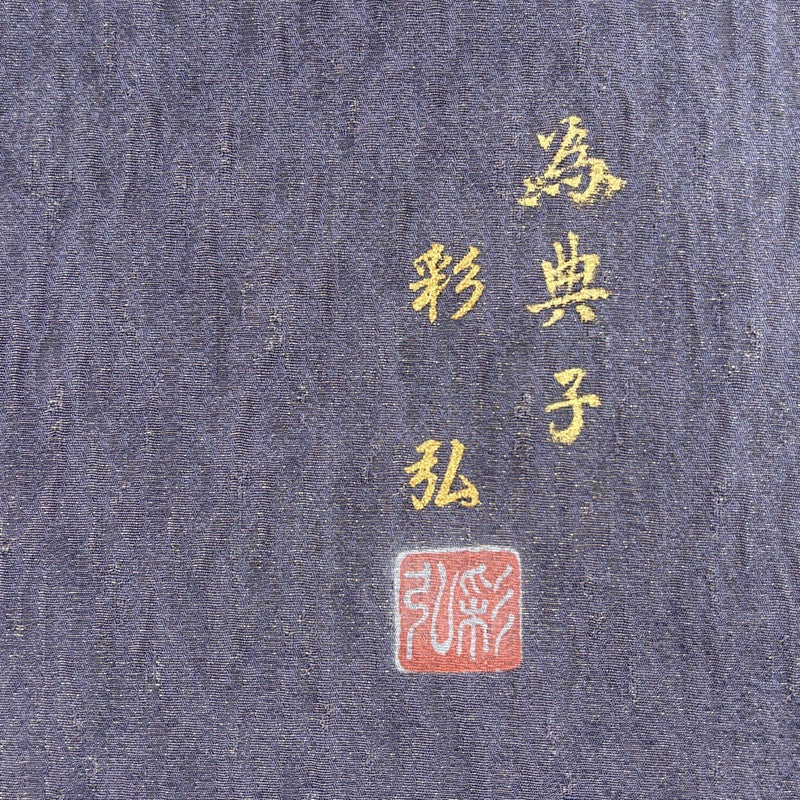 為典子
彩弘
彩弘